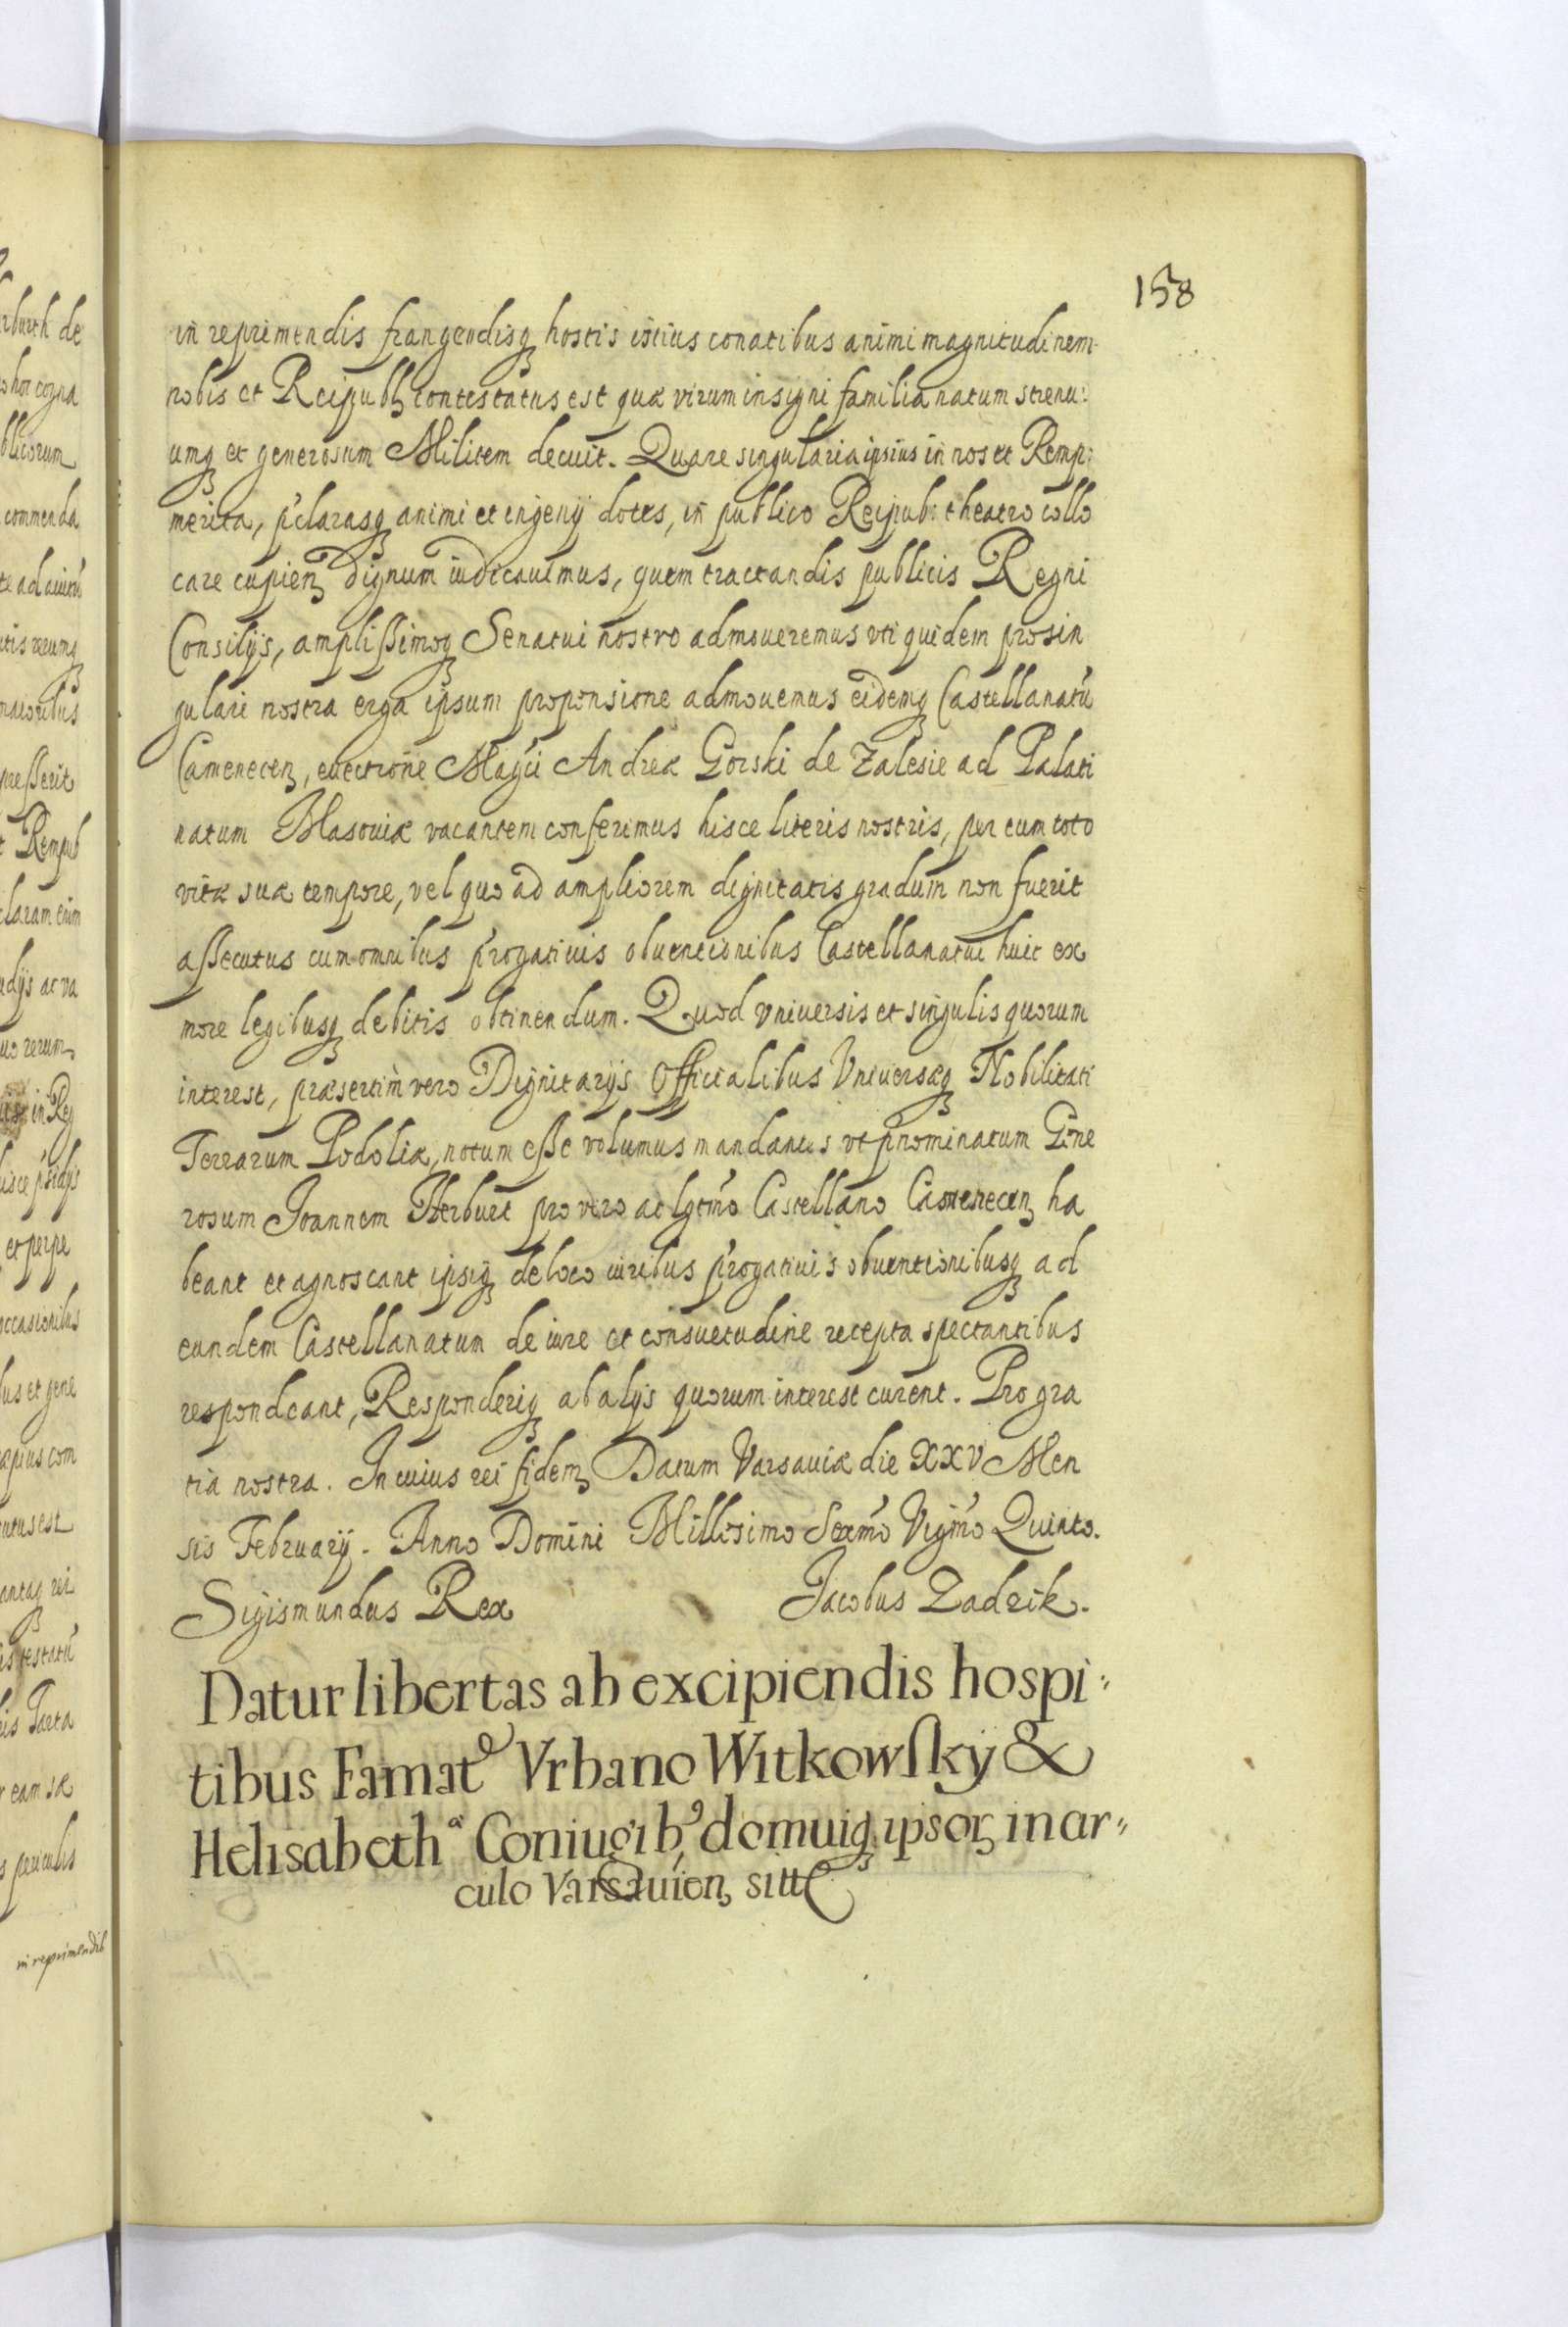 158
in reprimendis frangendisq hostis istius conatibus animi magnitudinem
nobis et Reipubl contestatus est quæ virum insigni familia natum strenu:
umq et generosum Militem decuit. Quare singularia ipsius in nos et Remp:
merita, p'clarasq animi et ingenij dotes, in publico Reipub: theatro collo
care cupien dignum iudicauimus, quem tractandis publicis Regni
Consilijs, amplissimoq Senatui nostro admoueremus vti quidem pro sin
gulari nostra erga ipsum propensione admouemus eidemq Castellanatũ
Camenecen, euectione Magci Andreæ Gorski de Zalesie ad Palati
natum Masouiæ vacantem conferimus hisce literis nostris, per eum toto
vitæ suæ tempore, vel quo ad ampliorem dignitatis gradum non fuerit
assecutus cum omnibus p'rogatiuis obuentionibus Castellanatui huic ex
more legibusq debitis obtinendum. Quod vniuersis et singulis quorum
interest, præsertim vero Dignitarijs Officialibus Vniuersæq Nobilitati
Terrarum Podoliæ, notum esse volumus mandantes vt p'nominatum Gene
rosum Joannem Herburt pro vero ac lgtmo Castellano Camenecen ha
beant et agnoscant ipsiq de loco iuribus p'rogatiuis obuentionibusq ad
eundem Castellanatum de iure et consuetudine recepta spectantibus
respondeant, Responderiq ab alijs quorum interest curent. Pro gra
tia nostra. In cuius rei fidem Datum Varsauiæ die XXV Men
sis Februarij. Anno Domini Millesimo Sexmo Vigmo Quinto.
Sigismundus Rex Jacobus Zadzik.
Datur libertas ab excipiendis hospi:
tibus Famat° Vrbano Witkowsky &
Helisabethª Coniugib9 domuiq ipsor in ar=
culo Varsauien sittæ
in reprimendis